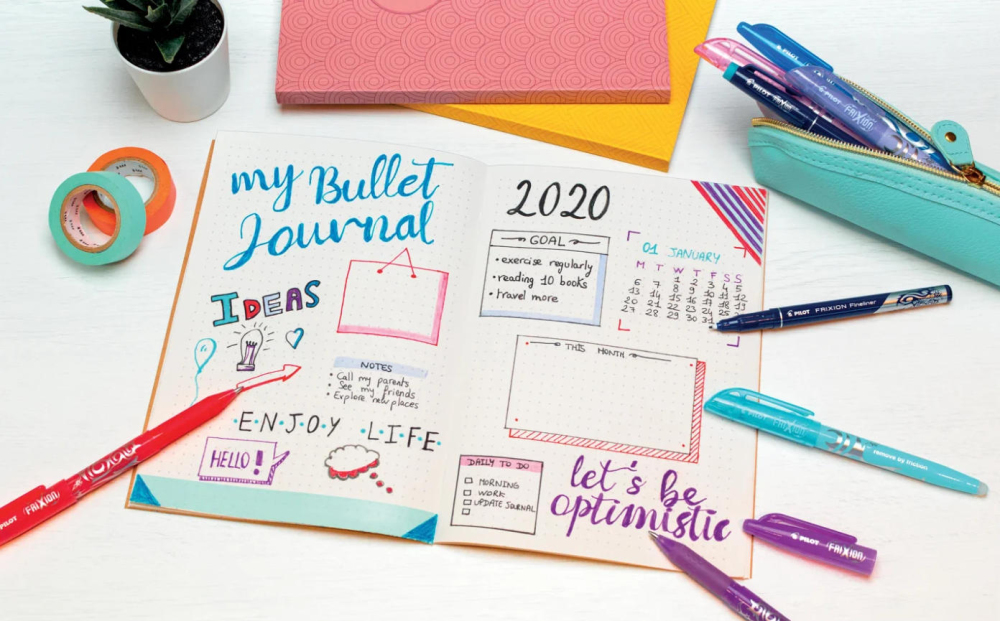 my Bullet
Journal
IDEAS
NOTES
• Call my parents
• See my friends
• Explore new places
•E•N•J•O•Y •L•I•F•E•
HELLO!
2020
GOAL
• exercise regularly
• reading 10 books
• travel more
01 JANUARY
M T W T F S S
1 2 3 4 5
6 7 8 9 10 11 12
13 14 15 16 17 18 19
20 21 22 23 24 25 26
27 28 29 30 31
THIS MONTH
DAILY TO DO
MORNING
WORK
UPDATE JOURNAL
let's be
optimistic
PILOT
PILOT FRIXION
PILOT FRIXION Fineliner
PILOT FRIXION
remove by friction
PILOT FRIXION
PILOT FRIXION